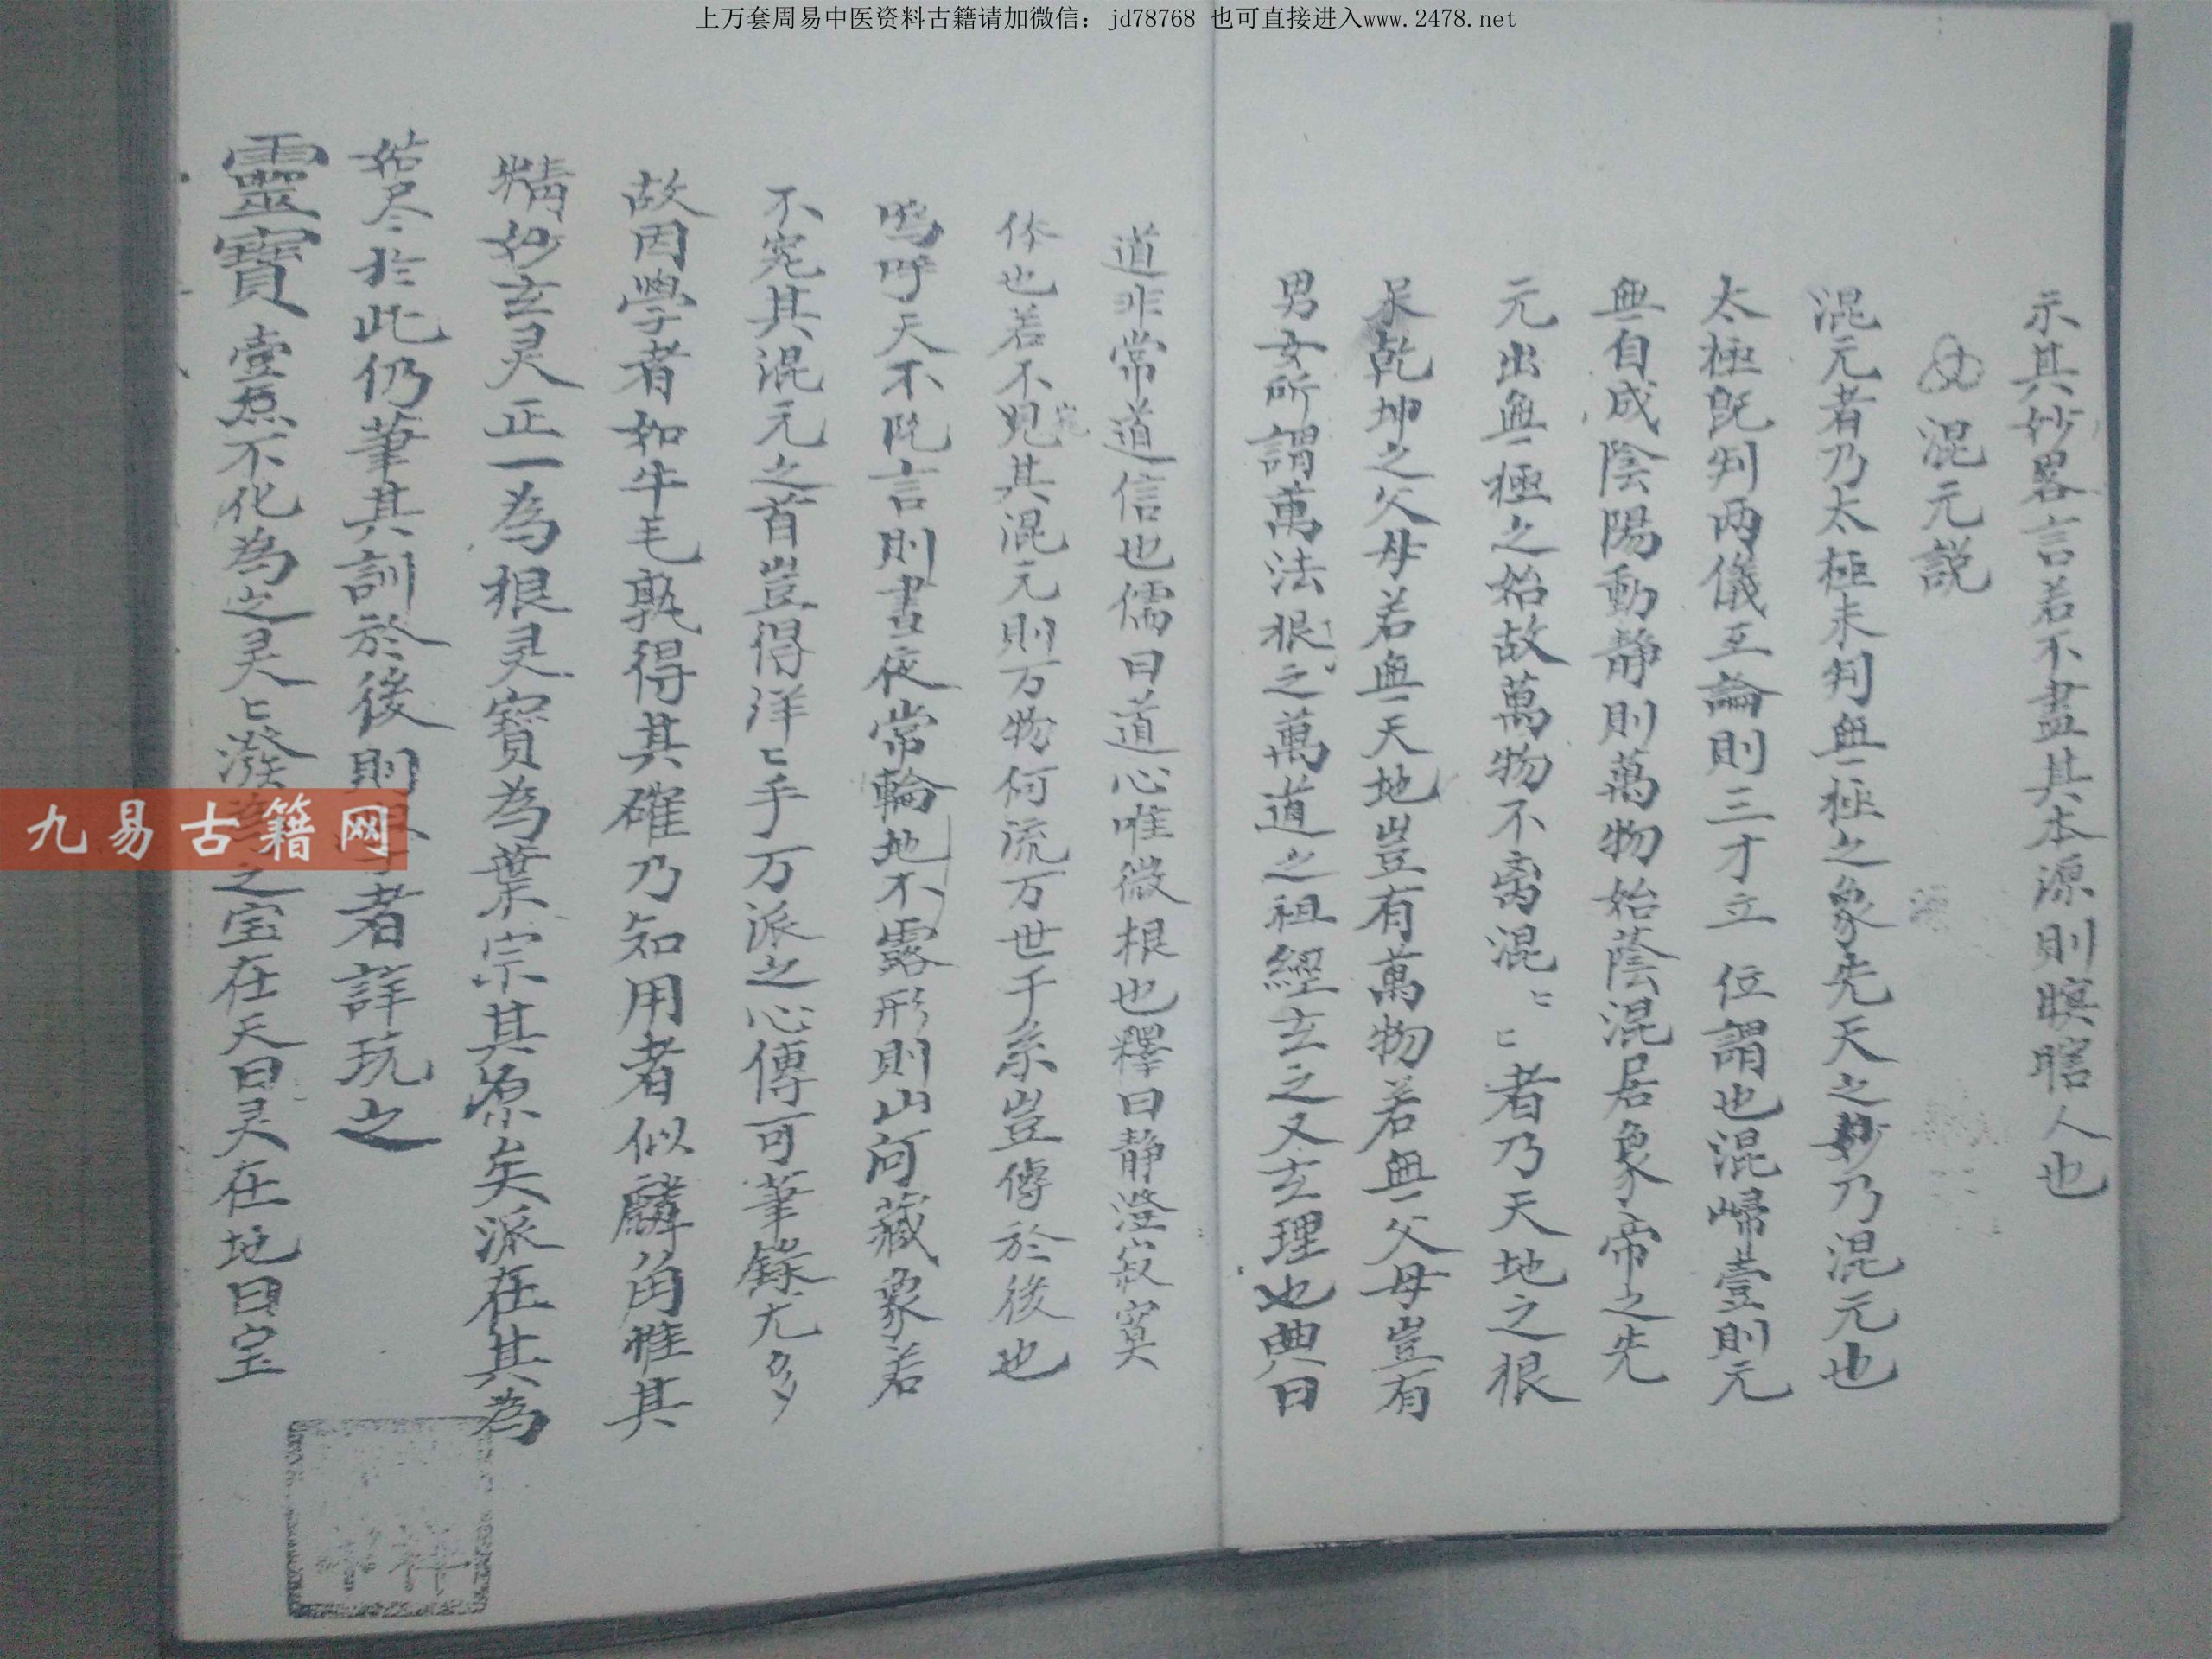 上万套周易中医资料古籍请加微信：jd78768 也可直接进入www.2478.net
示其妙畧言若不盡其本源則瞑瞎人也
混元説
混元者乃太極未判無極之象先天之妙乃混元也
太極既判兩儀互論則三才立 位謂也混歸壹則元
無自成陰陽動静則萬物始蔭混居象帝之先
元出無極之始故萬物不离混〻〻者乃天地之根
乾坤之父母若無天地豈有萬物若無父母豈有
男女所謂萬法根之萬道之祖經玄之又玄理也典曰
道非常道信也儒曰道心唯微根也釋曰静澄寂寞
体也若不見其混元則万物何流万世千系豈傳於後也
嗚呼天不言則晝夜常輪地不露形則山河藏象若
不究其混元之首豈得洋〻乎万派之心傳可筆錄尤
故因學者如牛毛孰得其確乃知用者似麟角惟其
精妙玄灵正一為根灵寶為葉宗其原矣派在其為
始尽於此仍筆其訓於後則者詳玩之
靈寶壹炁不化為之灵〻之宝在天曰灵在地曰宝
九易古籍网